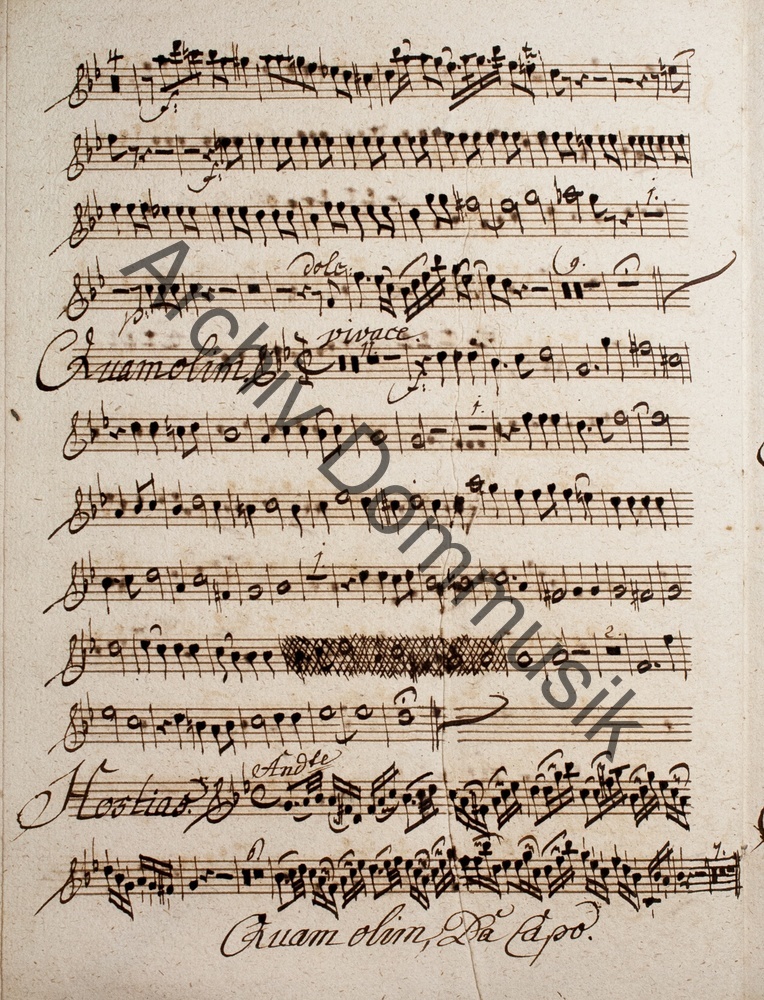 4
f:
f:
1.
p: dolce
9.
Quam olim. vivace.
11
f:
1.
1.
2
Hostias. Andte
6
7.
Quam olim, Da Capo.
Archiv Dommusik